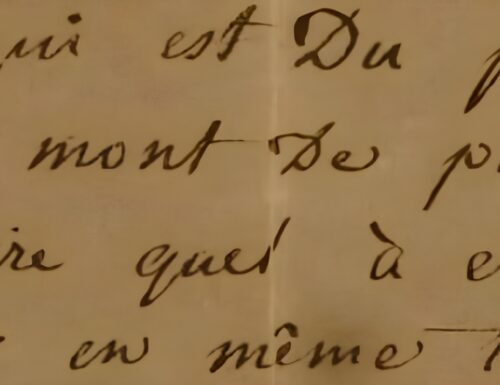 qui est Du p
mont De p
ire ques à e
en même